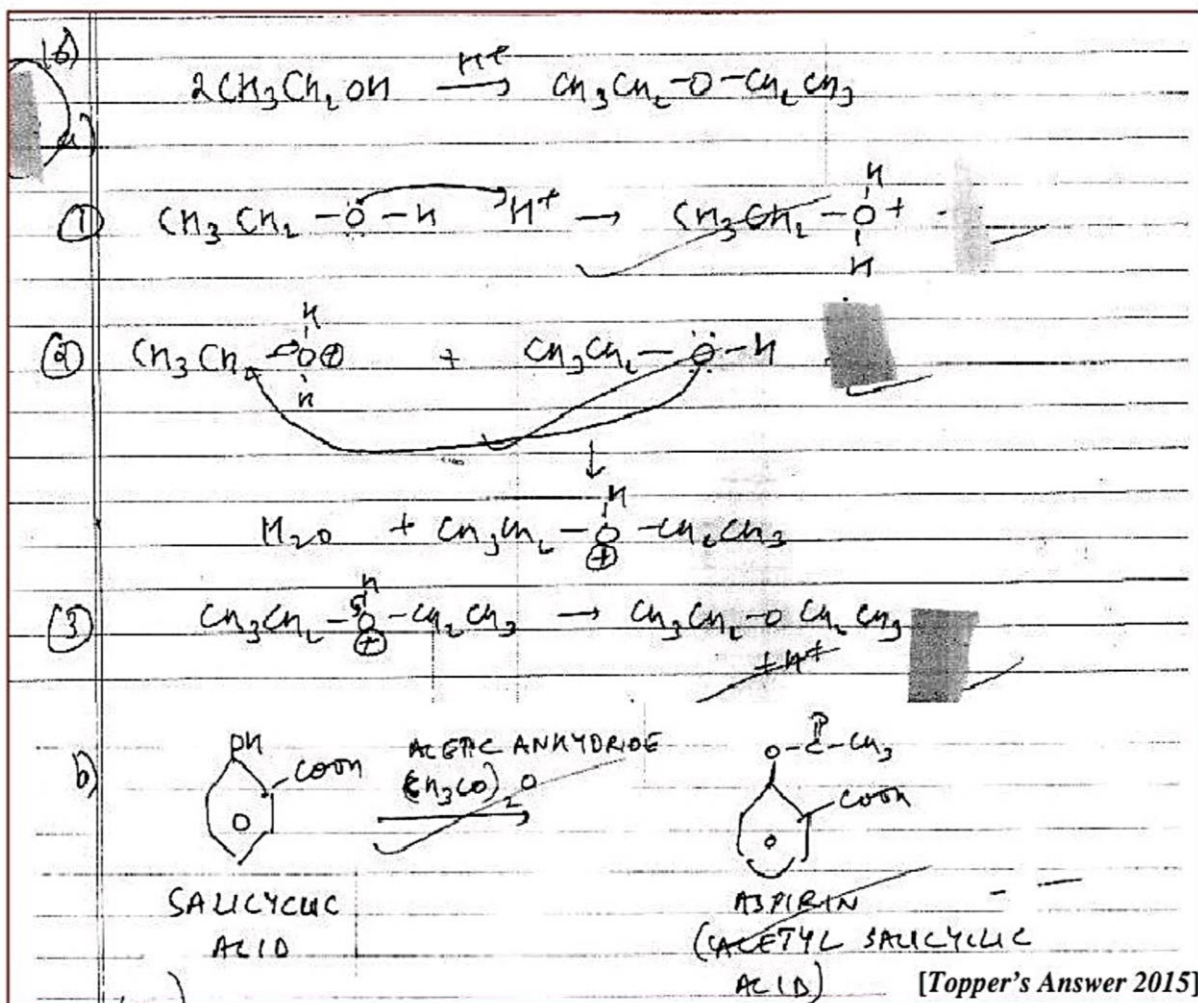 16)
2CH₃CH₂OH —H⁺→ CH₃CH₂–O–CH₂CH₃
a)
① CH₃CH₂–Ö–H H⁺ → CH₃CH₂–O⁺ H H
② CH₃CH₂–O⊕ H H + CH₃CH₂–Ö–H
↓
H₂O + CH₃CH₂–O⊕–CH₂CH₃ H
③ CH₃CH₂–O⊕–CH₂CH₃ H → CH₃CH₂–O CH₂CH₃
+ H⁺
b) OH COOH ACETIC ANHYDRIDE (CH₃CO)₂O → O–C–CH₃ O COOH
SALICYCLIC ASPIRIN
ACID (ACETYL SALICYLIC
ACID) [Topper's Answer 2015]